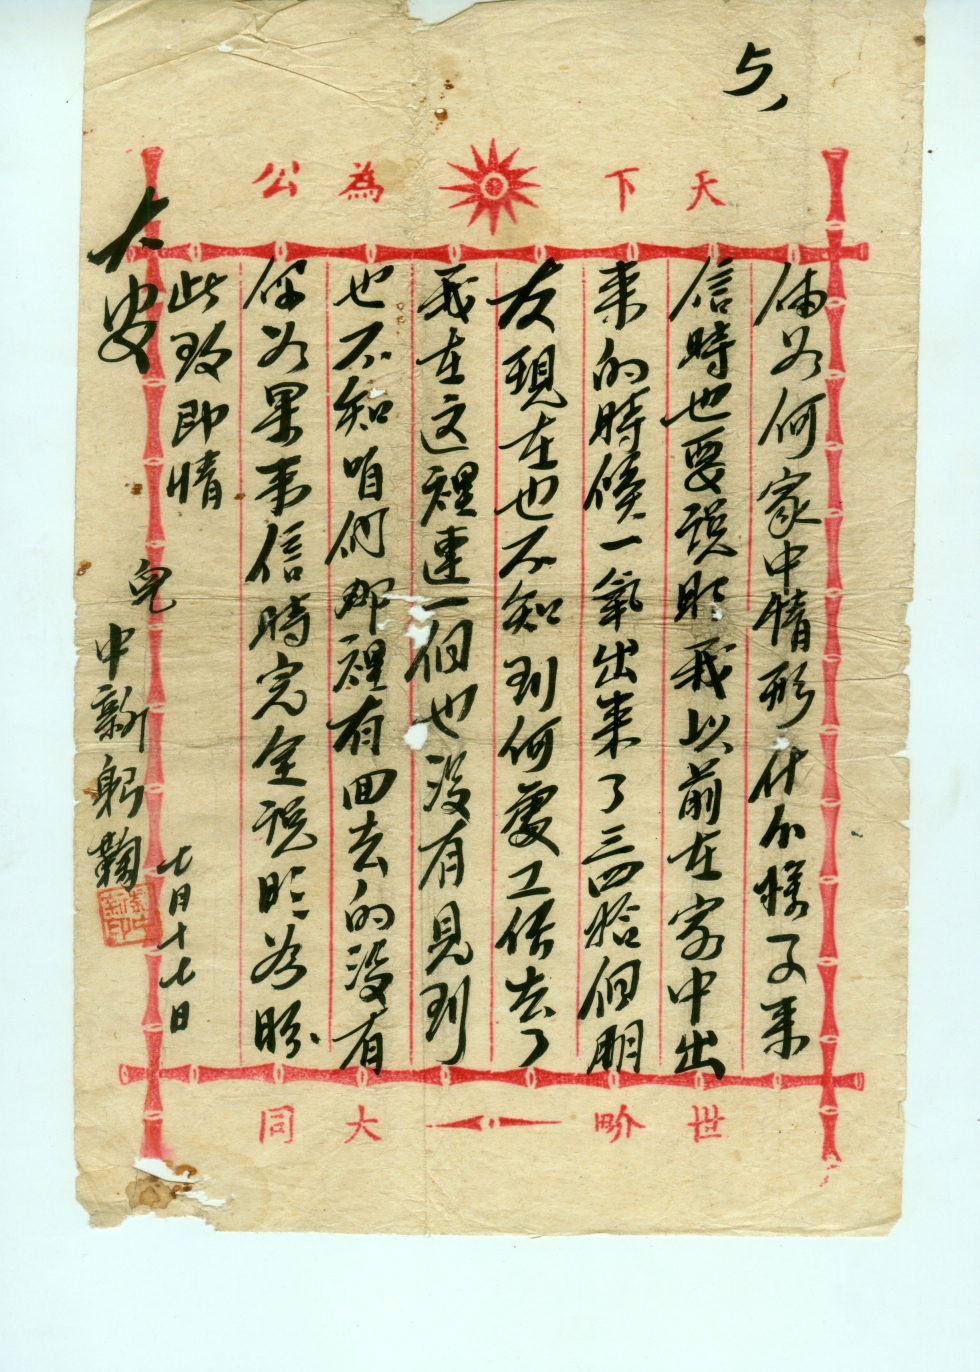 5、
天下為公
佈如何家中情形什么樣子来
信時也要説明我以前在家中出
来的時候一氣出来了三四拾個朋
友現在也不知到何處工作去了
我在这裡連一個也没有見到
也不知咱們那裡有回去的没有
你如果来信時完全説明為盼
此致即情
大安
兒
中新躬鞠
七月十七日
世界大同